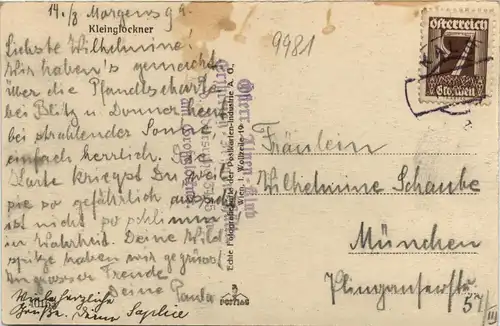 14./8 Morgens 9h.
Kleinglockner
9981
Liebste Wilhelmine!
Wir haben's gemacht
über die Pfandlscharte
bei Blitz u. Donner, heu
bei strahlender Sonne
einfach herrlich.
Karte kriegst Du weil
sie so gefährlich aussieht
ist nicht so schlimm
in Wahrheit. Deine Wild
spitze haben wir gegrüsst
in grosser Freude
Deine Paula
Viele herzliche
Grüße. Deine
Österr. Alpen-Klub
Echte Fotografie der Postkarten-Industrie A. G.,
Wien, I. Wollzeile 19
POSTIAG
Österreich
7
Groschen
Fräulein
Wilhelmine Schaube
München
Plinganserstr.
57/III